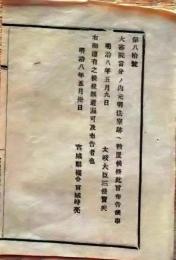 第八拾號
大審院當分ノ内元明法寮跡ヘ被置候條此旨布告候事
明治八年五月九日
太政大臣三條實美
右御達有之候條無遺漏可及布告者也
明治八年五月廿日
宮城縣權令宮城時亮